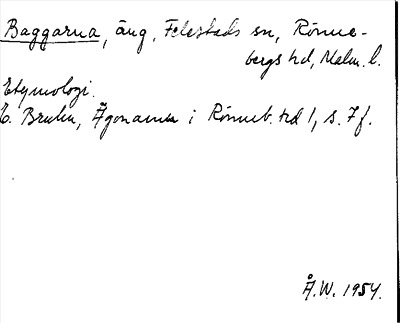 Baggarna, äng, Felestads sn, Rönne-
bergs hd, Malm. l.
Etymologi.
E. Bruhn, Ägonamn i Rönneb. hd 1, s. 7 f.
Å.W. 1954.